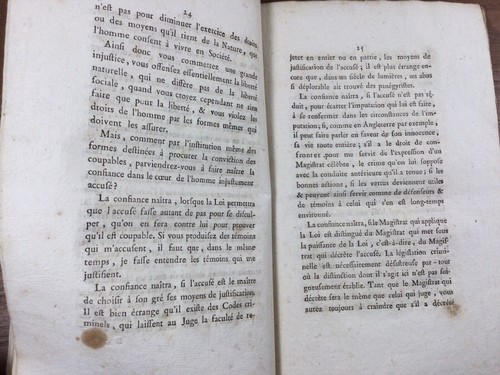 24
n'est pas pour diminuer l'exercice des droits
ou des moyens qu'il tient de la Nature, que
l'homme consent à vivre en Société.
Ainsi donc vous commettez une grande
injustice, vous offensez essentiellement la liberté
naturelle, qui ne différe pas de la liberté
sociale, quand vous croyez cependant ne rien
faire que pour la liberté, & vous violez les
droits de l'homme par les formes mêmes qui
doivent les assurer.
Mais, comment par l'institution même des
formes destinées à procurer la conviction des
coupables, parviendrez-vous à faire naître la
confiance dans le cœur de l'homme injustement
accusé?
La confiance naîtra, lorsque la Loi permettra
que l'accusé fasse autant de pas pour se discul-
per, qu'on en sera contre lui pour prouver
qu'il est coupable. Si vous produisez des témoins
qui m'accusent, il faut que, dans le même
temps, je fasse entendre les témoins qui me
justifient.
La confiance naîtra, si l'accusé est le maître
de choisir à son gré ses moyens de justification.
Il est bien étrange qu'il existe des Codes cri-
minels, qui laissent au Juge la faculté de re-
25
jeter en entier ou en partie, les moyens de
justification de l'accusé; il est plus étrange en-
core que, dans un siècle de lumières, un abus
si déplorable ait trouvé des panégyristes.
La confiance naîtra, si l'accusé n'est pas ré-
duit, pour écarter l'imputation qui lui est faite,
à se renfermer dans les circonstances de l'im-
putation; si, comme en Angleterre par exemple,
il peut faire parler en faveur de son innocence,
sa vie toute entiere; s'il a le droit de con-
fronter, pour me servir de l'expression d'un
Magistrat célèbre, le crime qu'on lui suppose
avec la conduite antérieure qu'il a tenue; si les
bonnes actions, si les vertus deviennent utiles
& peuvent ainsi servir comme de défenseurs &
de témoins à celui qui s'en est long-temps
environné.
La confiance naîtra, si le Magistrat qui applique
la Loi est distingué du Magistrat qui met sous
la puissance de la Loi, c'est-à-dire, du Magis-
trat qui décrète l'accusé. La législation crimi-
nelle est nécessairement désastreuse par-tout
où la distinction dont il s'agit ici n'est pas soi-
gneusement établie. Tant que le Magistrat qui
décrète sera le même que celui qui juge, vous
aurez toujours à craindre que s'il a décrété